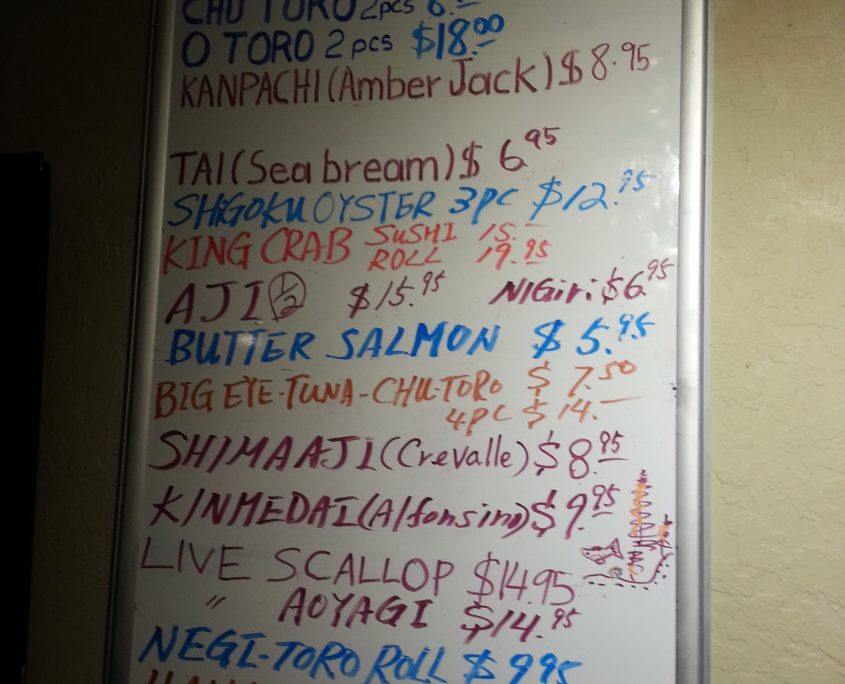 CHU TORO 2pcs
O TORO 2 pcs $18.00
KANPACHI (Amber Jack) $8.95
TAI (Sea bream) $6.95
SHIGOKU OYSTER 3PC $12.95
KING CRAB SUSHI 15.-
ROLL 19.95
AJI 1/2 $15.95 NIGiri $6.95
BUTTER SALMON $5.95
BIG EYE-TUNA-CHU-TORO $7.50
4PC $14.-
SHIMAAJI (Crevalle) $8.95
KINMEDAI (Alfonsino) $9.95
LIVE SCALLOP $14.95
" AOYAGI $14.95
NEGI-TORO ROLL $9.95